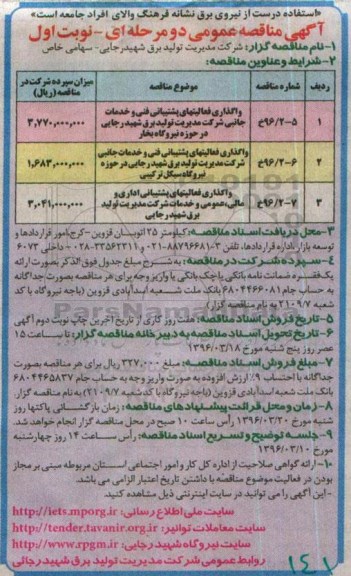 «استفاده درست از نیروی برق نشانه فرهنگ والای افراد جامعه است»
آگهی مناقصه عمومی دو مرحله ای - نوبت اول
۱-نام مناقصه گزار: شرکت مدیریت تولید برق شهیدرجایی- سهامی خاص
۲-شرایط و عناوین مناقصه:
ردیف شماره مناقصه موضوع مناقصه میزان سپرده شرکت در مناقصه (ریال)
۱ ۹۶/۲-۵خ واگذاری فعالیتهای پشتیبانی فنی و خدمات جانبی شرکت مدیریت تولید برق شهید رجایی در حوزه نیروگاه بخار ۳,۷۷۰,۰۰۰,۰۰۰
۲ ۹۶/۲-۶خ واگذاری فعالیتهای پشتیبانی فنی و خدمات جانبی شرکت مدیریت تولید برق شهید رجایی در حوزه نیروگاه سیکل ترکیبی ۱,۶۸۳,۰۰۰,۰۰۰
۳ ۹۶/۲-۷خ واگذاری فعالیتهای پشتیبانی اداری و مالی، عمومی و خدمات شرکت مدیریت تولید برق شهید رجایی ۳,۰۴۱,۰۰۰,۰۰۰
۳-محل دریافت اسناد مناقصه: کیلومتر ۲۵ اتوبان قزوین -کرج امور قراردادها و
توسعه بازار، اداره قراردادها، تلفن ۳-۸۸۷۹۶۶۸۱-۰۲۱ و ۳۳۵۶۲۳۱۱-۰۲۸ داخلی ۶۰۷۳
۴-سپرده شرکت در مناقصه: به شرح مبلغ جدول فوق الذکر بصورت ارائه
یک فقره ضمانت نامه بانکی یا چک بانکی یا واریز وجه برای هر مناقصه بصورت جداگانه
به حساب جام ۶۸۰۴۴۶۶۰۸۱ بانک ملت شعبه اسدآبادی قزوین (باجه نیروگاه با کد
شعبه ۲۱۰۹/۷ به نام مناقصه گزار)
۵-تاریخ فروش اسناد مناقصه: هفت روز کاری از تاریخ آخرین چاپ نوبت دوم آگهی
۶-تاریخ تحویل اسناد مناقصه به دبیرخانه مناقصه گزار: تا ساعت ۱۵
عصر روز پنج شنبه مورخ ۱۳۹۶/۰۳/۱۸
۷-مبلغ فروش اسناد مناقصه: مبلغ ۳۲۷,۰۰۰ ریال برای هر مناقصه بصورت
جداگانه با احتساب ۹٪ ارزش افزوده به صورت واریز وجه به حساب جام ۶۸۰۴۴۶۵۸۳۷
بانک ملت شعبه اسدآبادی قزوین (باجه نیروگاه با کد شعبه ۲۱۰۹/۷) به نام مناقصه گزار.
۸-زمان و محل قرائت پیشنهاد های مناقصه: زمان بازگشائی پاکتها روز
شنبه مورخ ۱۳۹۶/۰۳/۲۰ رأس ساعت ۱۰ صبح در محل مناقصه گزار انجام خواهد شد.
۹-جلسه توضیح و تسریع اسناد مناقصه: رأس ساعت ۱۴ روز چهارشنبه
مورخ ۱۳۹۶/۰۳/۱۰
۱۰-ارائه گواهی صلاحیت از اداره کل کار و امور اجتماعی استان مربوطه مبنی بر مجاز
بودن در فعالیت موضوع مناقصه با داشتن تاریخ اعتبار الزامی می باشد.
-این آگهی را می توانید در سایت اینترنتی ذیل مشاهده کنید.
سایت ملی اطلاع رسانی: http://iets.mporg.ir
سایت معاملات توانیر: http://tender.tavanir.org.ir
سایت نیروگاه شهید رجایی: http://www.rpgm.ir
روابط عمومی شرکت مدیریت تولید برق شهید رجائی
۱۴۱